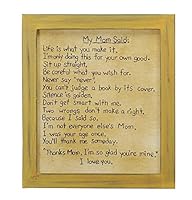 My Mom Said:
Life is what you make it.
I'm only doing this for your own good.
Sit up straight.
Be careful what you wish for.
Never say "never".
You can't judge a book by its cover.
Silence is golden.
Don't get smart with me.
Two wrongs don't make a right.
Because I said so.
I'm not everyone else's Mom,
I was your age once.
You'll thank me someday.
"Thanks Mom, I'm so glad you're mine!"
I love you.